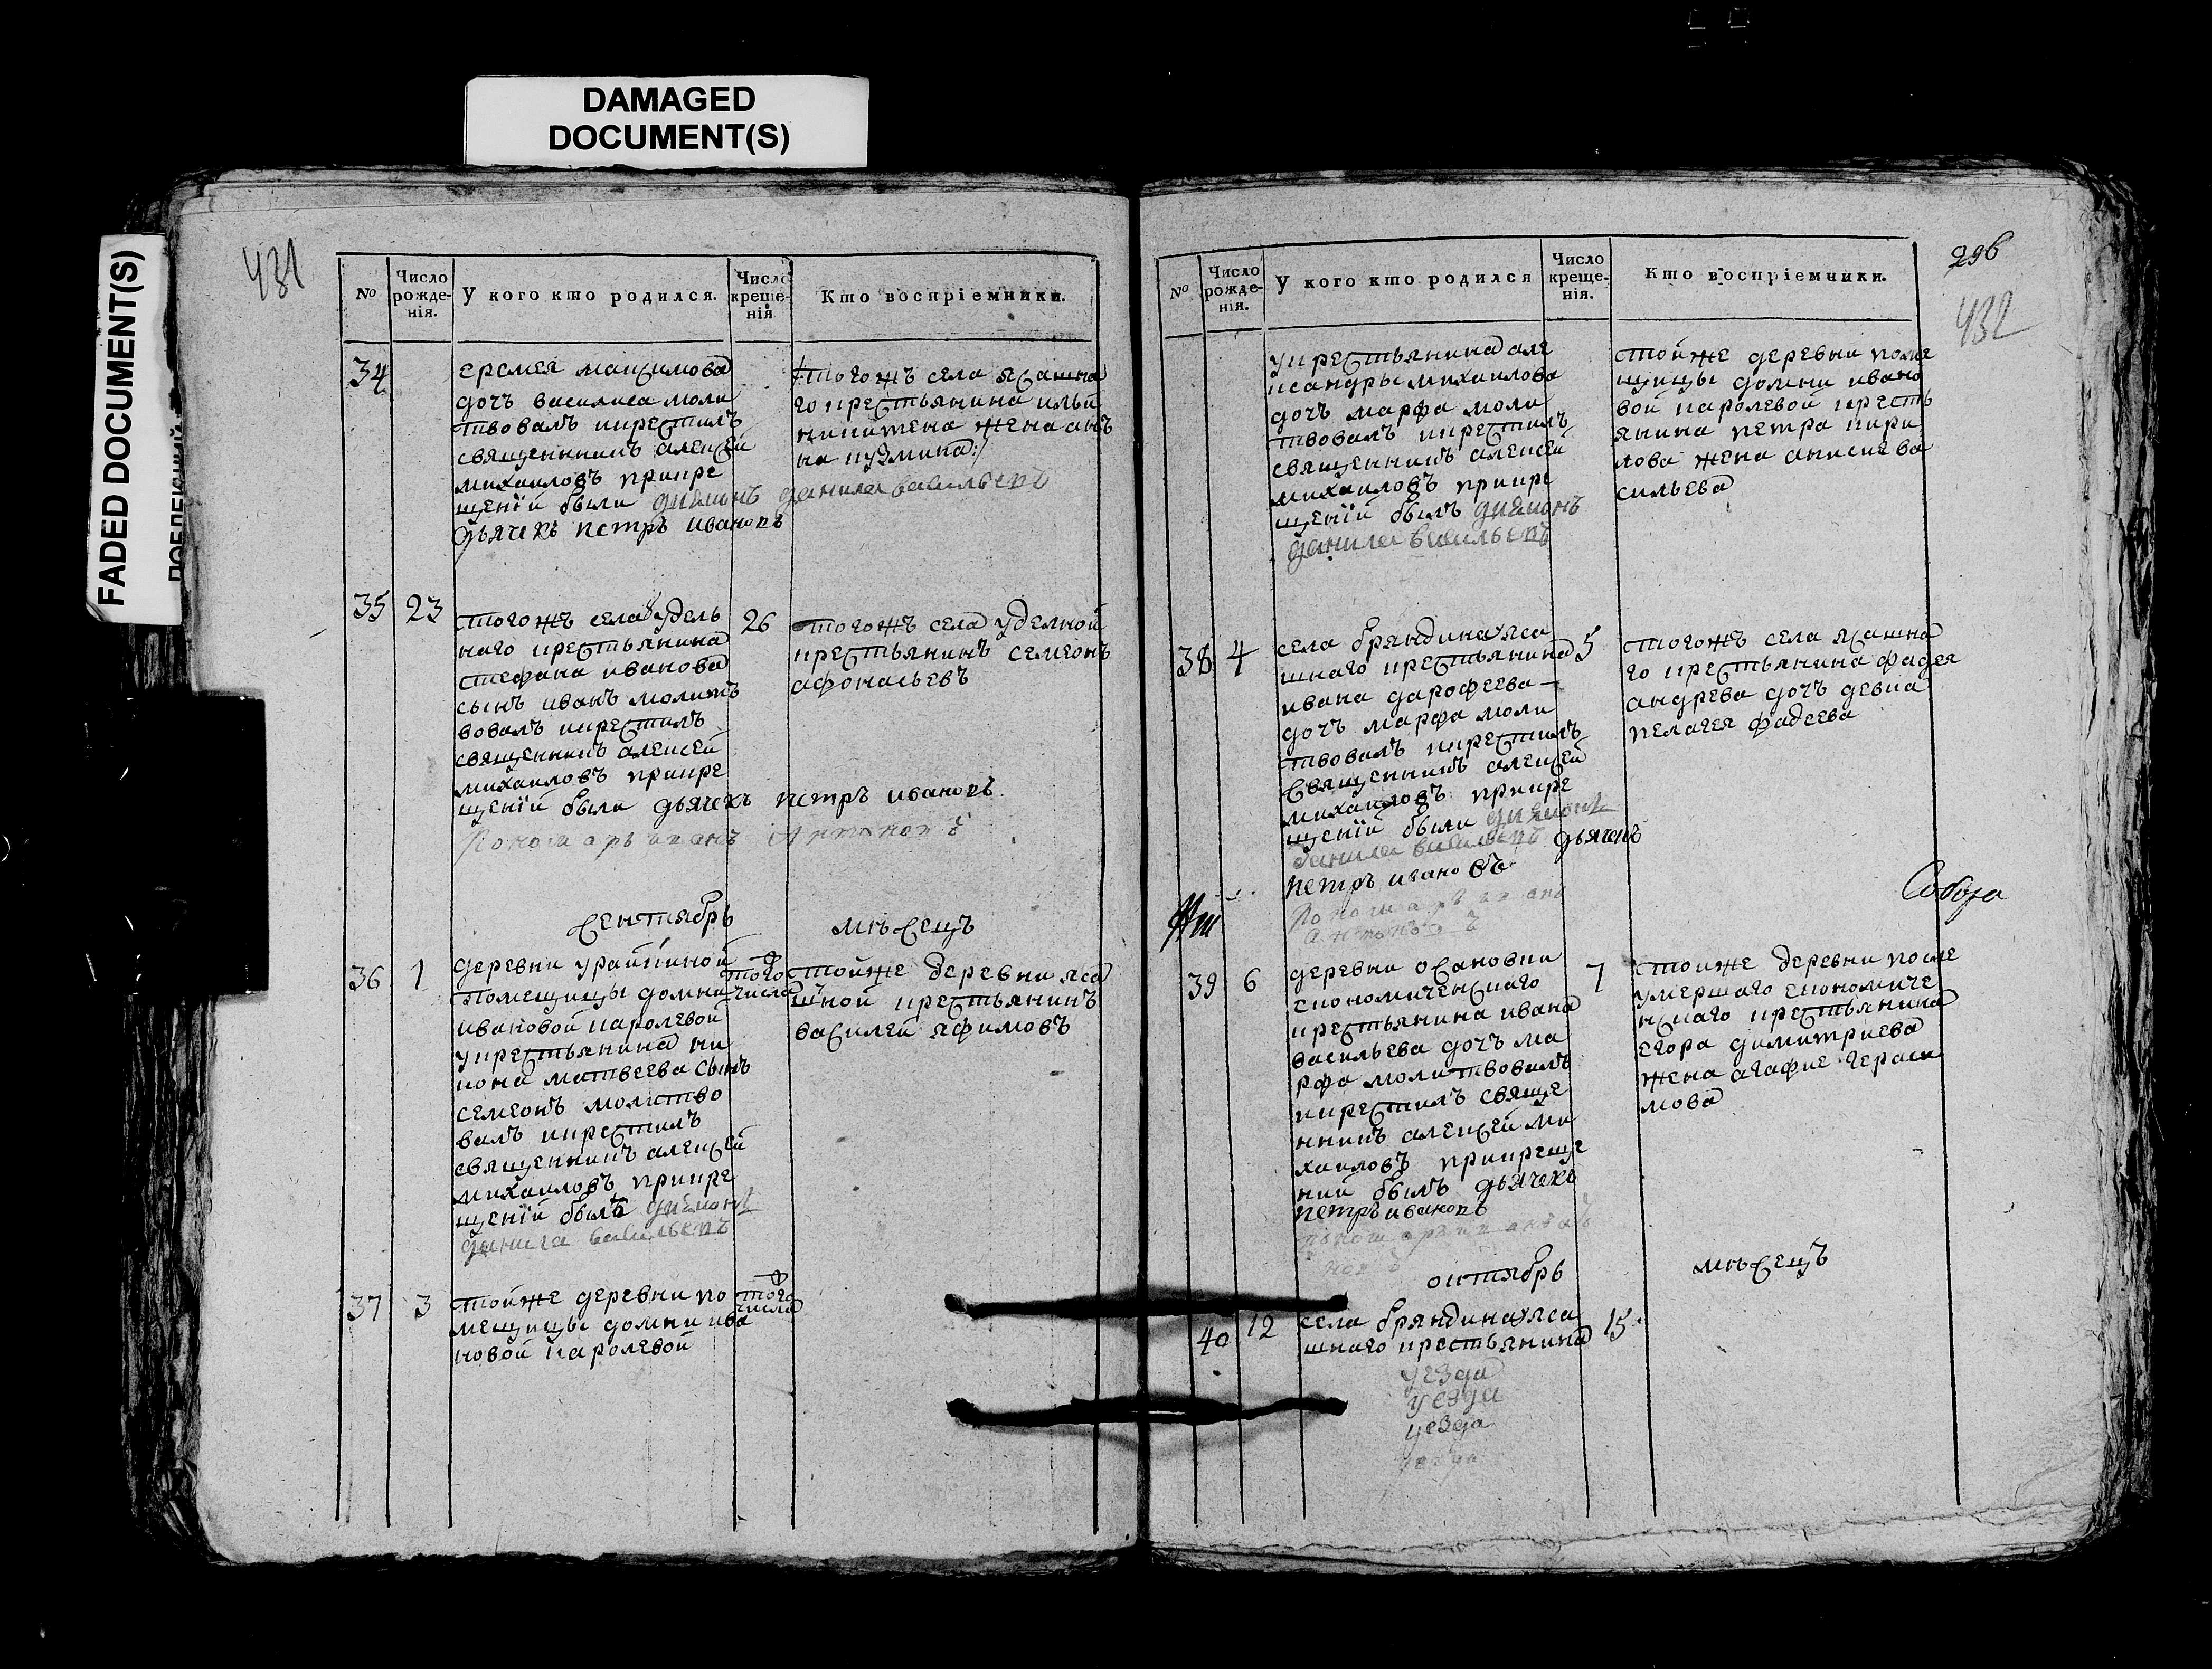 DAMAGED
DOCUMENT(S)
FADED DOCUMENT(S)
431
№
Число рожде-нія.
У кого кто родился.
Число креще-нія
Кто воспріемники.
34
еремея максимова
дочъ василиса моли
твовалъ икрестилъ
священникъ алексей
михаиловъ прикре
щенїи были дияконъ данила васильевъ
дьячекъ петръ ивановъ
тогожъ села ясашна
го крестьянина ильи
никитена жена ан
на кузмина
35
23
тогожъ села удель
наго крестьянина
стефана иванова
сынъ иванъ молит
вовалъ икрестилъ
священникъ алексей
михаиловъ прикре
щенїи были дьячекъ петръ ивановъ.
пономарь иванъ Антоновъ
26
тогожъ села уделной
крестьянинъ семеонъ
афонасьевъ
сентябрь мѣсецъ
36
1
деревни урайкиной
помещицы домни
ивановой каролевой
укрестьянина ни
кона матвеева сынъ
семеонъ молитво
валъ икрестилъ
священникъ алексей
михаиловъ прикре
щенїи былъ диякон
данила васильевъ
того
числа
тойже деревни яса
шной крестьянинъ
василей яфимовъ
37
3
тойже деревни по
мещицы домни ива
новой каролевой
того
числа
296
432
№
Число рожде-нія.
У кого кто родился
Число креще-нія.
Кто воспріемники.
укрестьянина але
ксандры михаилова
дочъ марфа моли
твовалъ икрестилъ
священникъ алексей
михаиловъ прикре
щенїи былъ диякокъ
данила васильевъ
тойже деревни поме
щицы домни ивано
вой каролевой кресть
янина петра кири
лова жена анисия ва
сильева
38
4
села бряндина яса
шнаго крестьянина
ивана дарофеева
дочъ марфа моли
твовалъ икрестилъ
священникъ алексей
михаиловъ прикре
щенїи были диякон
данила васильевъ дьячекъ
петръ ивановъ
пономарь иванъ
антоновъ
5
тогожъ села ясашна
го крестьянина фадея
андрева дочъ девка
пелагея фадеева
Собора
39
6
деревни осановки
економическаго
крестьянина ивана
васильева дочъ ма
рфа молитвовалъ
икрестилъ свяще
нникъ алексей ми
хаиловъ прикреще
нии былъ дьячекъ
петръ ивановъ
7
тойже деревни после
умершаго економиче
нскаго крестьянина
егора димитриева
жена агафие гераси
мова
октябрь мѣсецъ
40
12
села бряндина яса
шнаго крестьянина
15
уезда
уезда
уезда